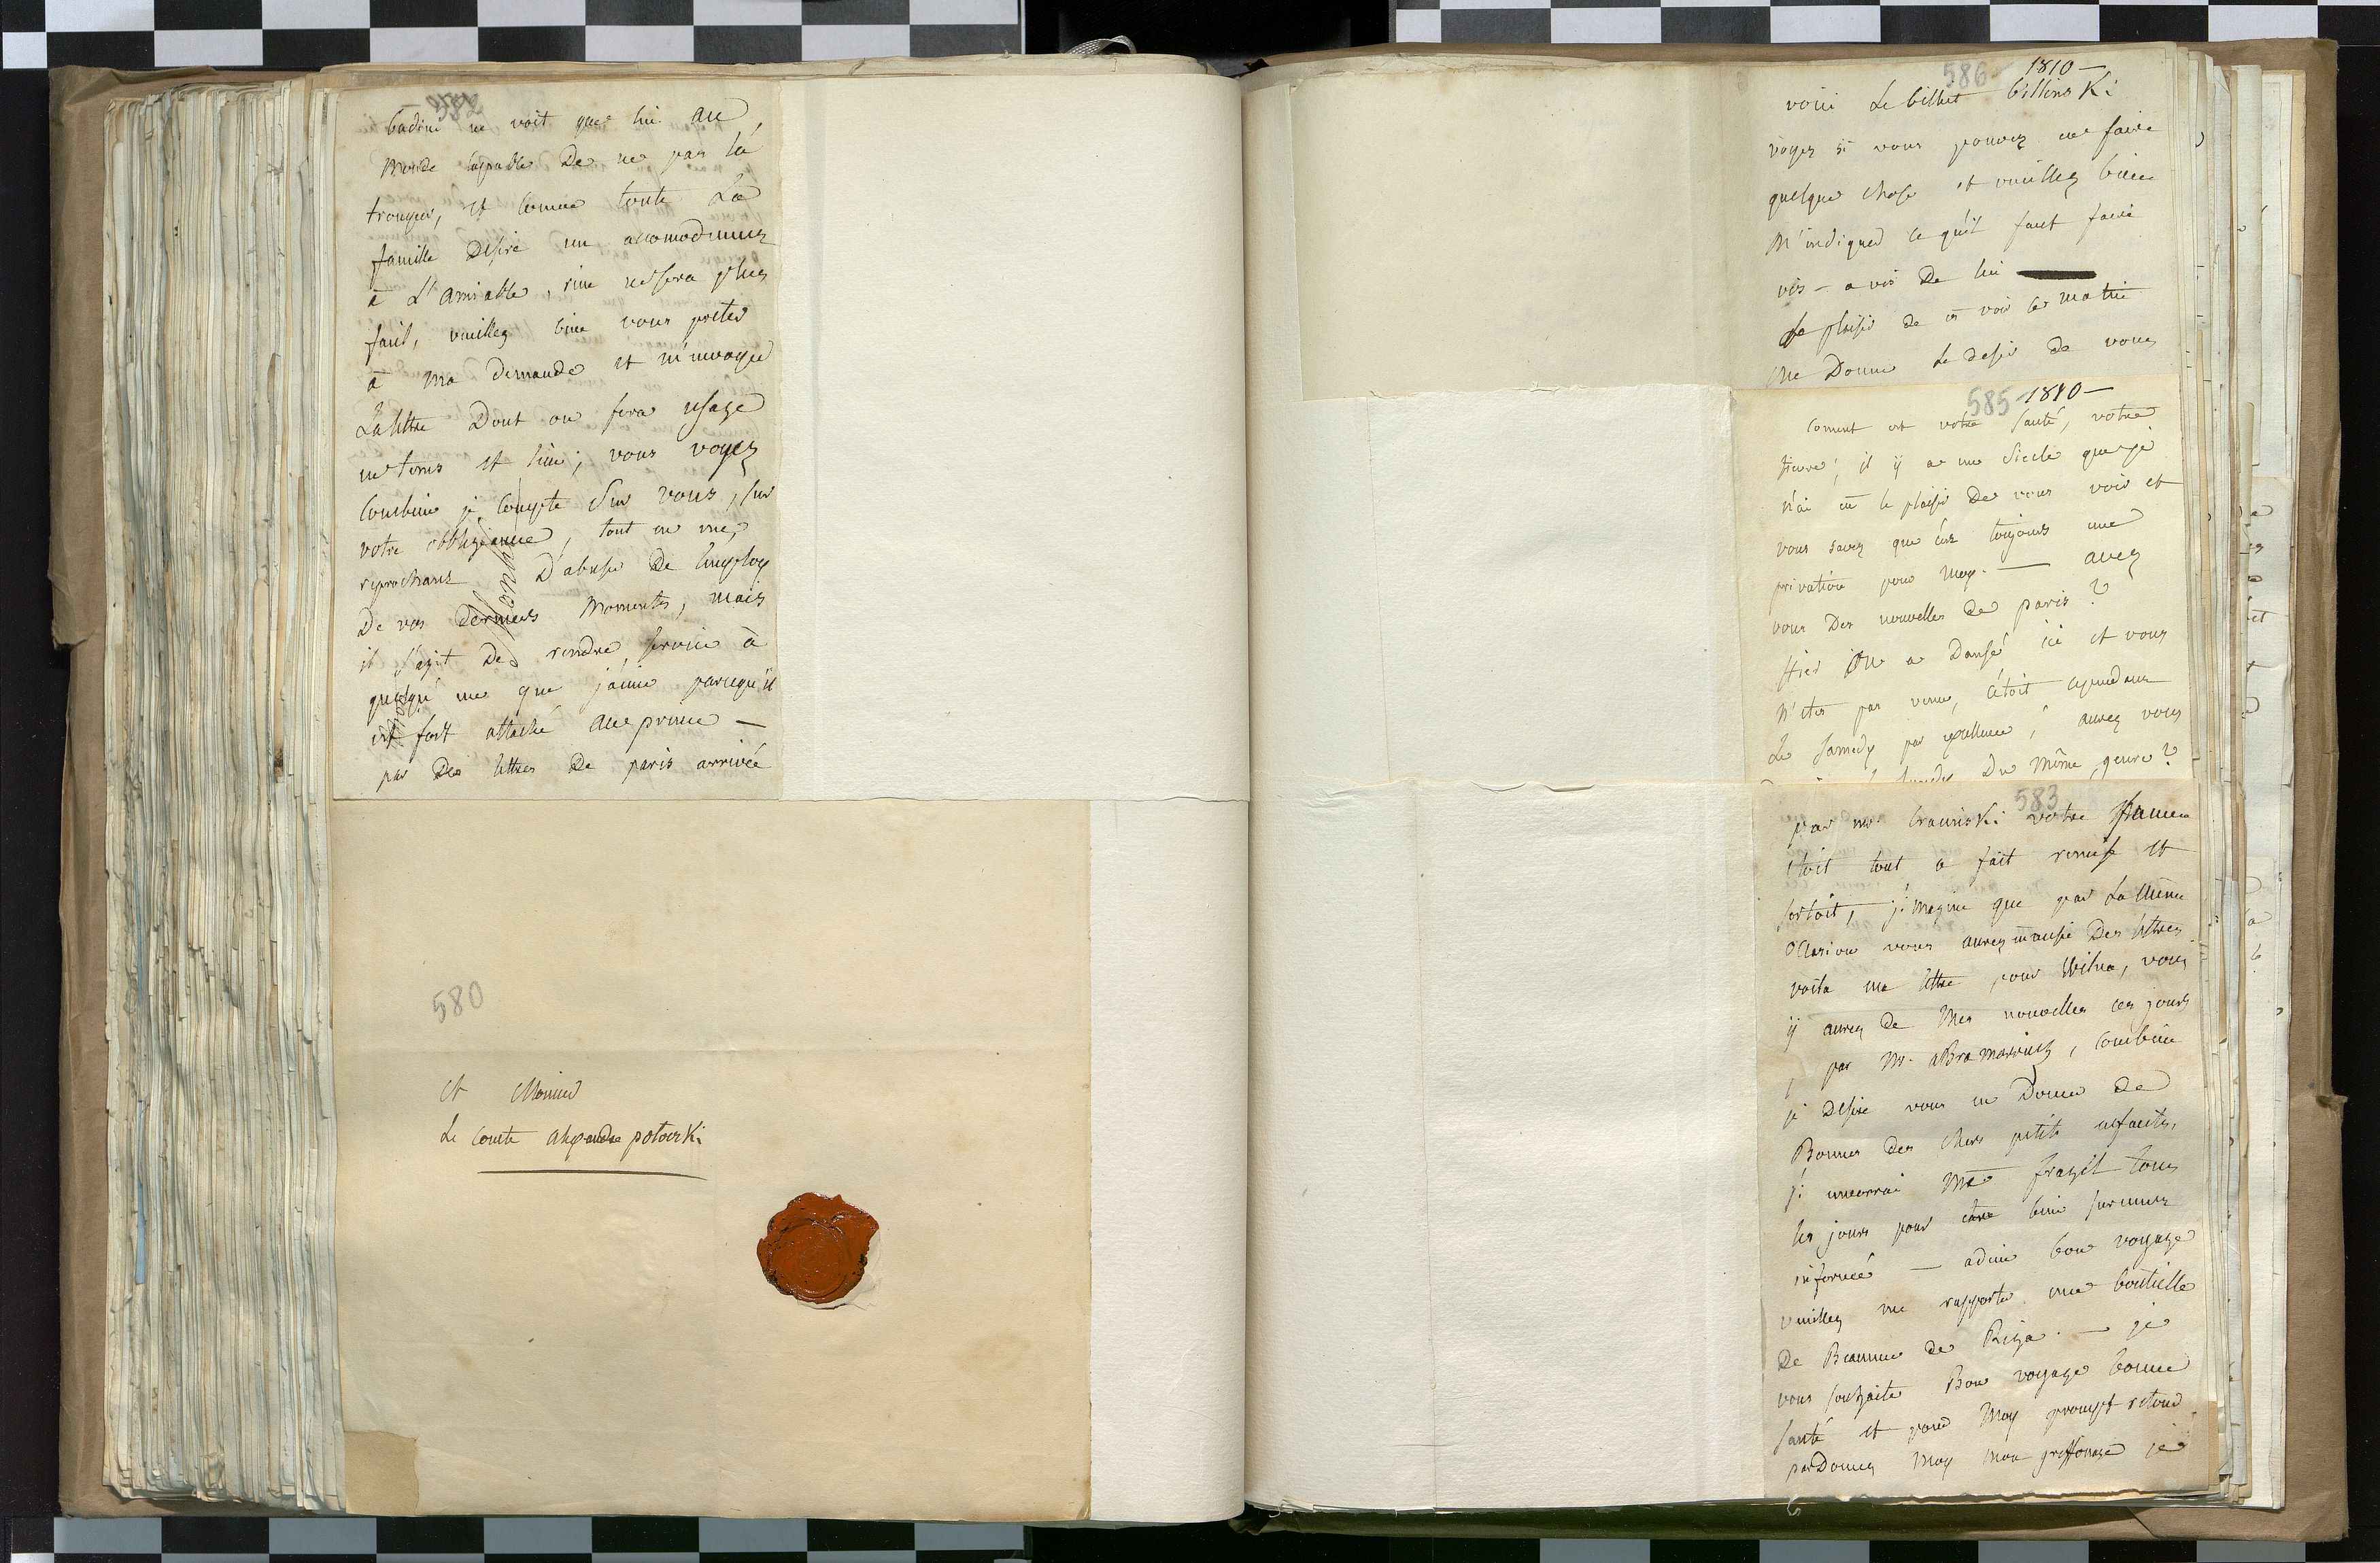 582
badine ne voit que lui au
Monde capable de ne pas la
tromper, et comme toute La
famille Desire un accomodement
à L'amiable, rien ne sera plus
fait, veuillez bien vous preter
à Ma demande et m'envoyer
La lettre Dont on fera usage
en tems et lieu; vous voyez
combien je compte sur vous, sur
votre obbligeance, tout en me
reprochant D'abuser de l'employ
De vos derniers Moments, mais
il s'agit De rendre service à
quelqu'un que j'aime parcequ'il
est fort attaché au prince —
par Des lettres De paris arrivée
580
A Monsieur
Le Comte Alexandre potocki
586 1810 —
voici Le billet billinski
voyez si vous pouvez en faire
quelque chose et veuillez bien
M'indiquer ce qu'il faut faire
vis-a vis De lui
Le plaisir de vs voir ce matin
Me Donne Le desir de vous
585 1810 —
Coment est votre santé, votre
fievre; il ÿ a un Siecle que je
n'ai eü le plaisir De vous voir et
vous savez que c'est toujours une
privation pour Moy. — avez
vous Des nouvelles De paris?
Hier on a Dansé ici et vous
N'etes pas venu, c'étoit cependant
Le Samedy par excellence, aurez vous
Du Même genre?
583
par mr. Crasinski votre
étoit tout a fait remise et
sortoit, j'imagine que par La Même
Occasion vous aurez aussi Des lettres
voila ma lettre pour Wilna, vous
ÿ aurez De Mes nouvelles ces jours
par Mr. Abramowicz, combien
je Desire vous en Donner De
Bonnes Des chers petits enfants,
j'enverrai Me fragét tous
les jours pour etre bien surement
informée — adieu bon voyage
veuillez me rapporter une bouteille
De Beaume de Riga. — je
vous souhaite Bon voyage bonne
santé et pour Moy prompt retour
parDonnez Moy Mon griffonage je